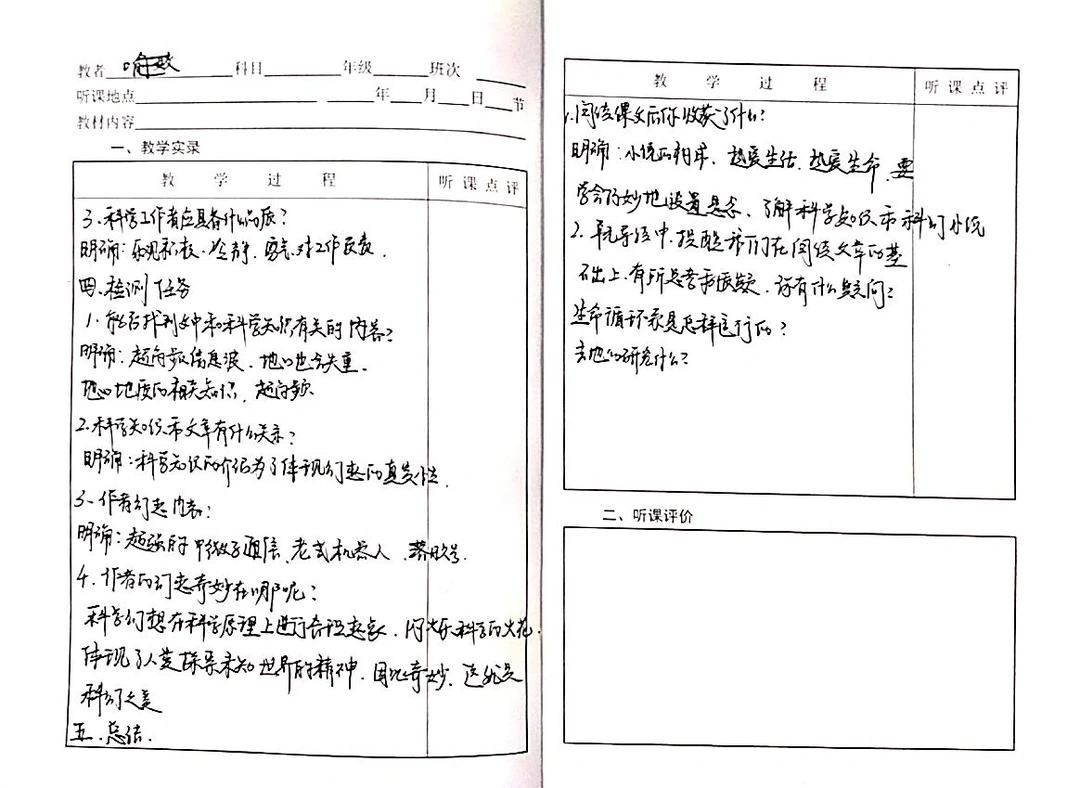 教者 喻敏 科目 年级 班次
听课地点 年 月 日 节
教材内容
一、教学实录
教 学 过 程 听 课 点 评
3.科学工作者应具备什么品质?
明确:乐观积极、冷静、勇气、对工作负责.
四.检测任务
1.能否找到文中和科学知识有关的内容?
明确:超高频信息波、地心也会失重.
地心地度的相关知识、超高频
2.科学知识和文章有什么关系?
明确:科学知识的介绍为了体现幻想的真实性.
3.作者幻想内容:
明确:超强的中微子通信、老式机器人、落日6号.
4.作者的幻想奇妙在哪呢?
科学幻想在科学原理上进行合理想象.闪烁科学的火花.
体现了人类探寻未知世界的精神.因此奇妙.这就是
科幻之美
五.总结.
教 学 过 程 听 课 点 评
1.阅读课文后你收获了什么?
明确:小说的 热爱生活、热爱生命、要
学会巧妙地设置悬念、了解科学知识和科幻小说
2.单元导语中,提醒我们在阅读文章的基
础上,有所思考和质疑.还有什么疑问?
生命循环系是怎样运行的?
去地心研究什么?
二、听课评价